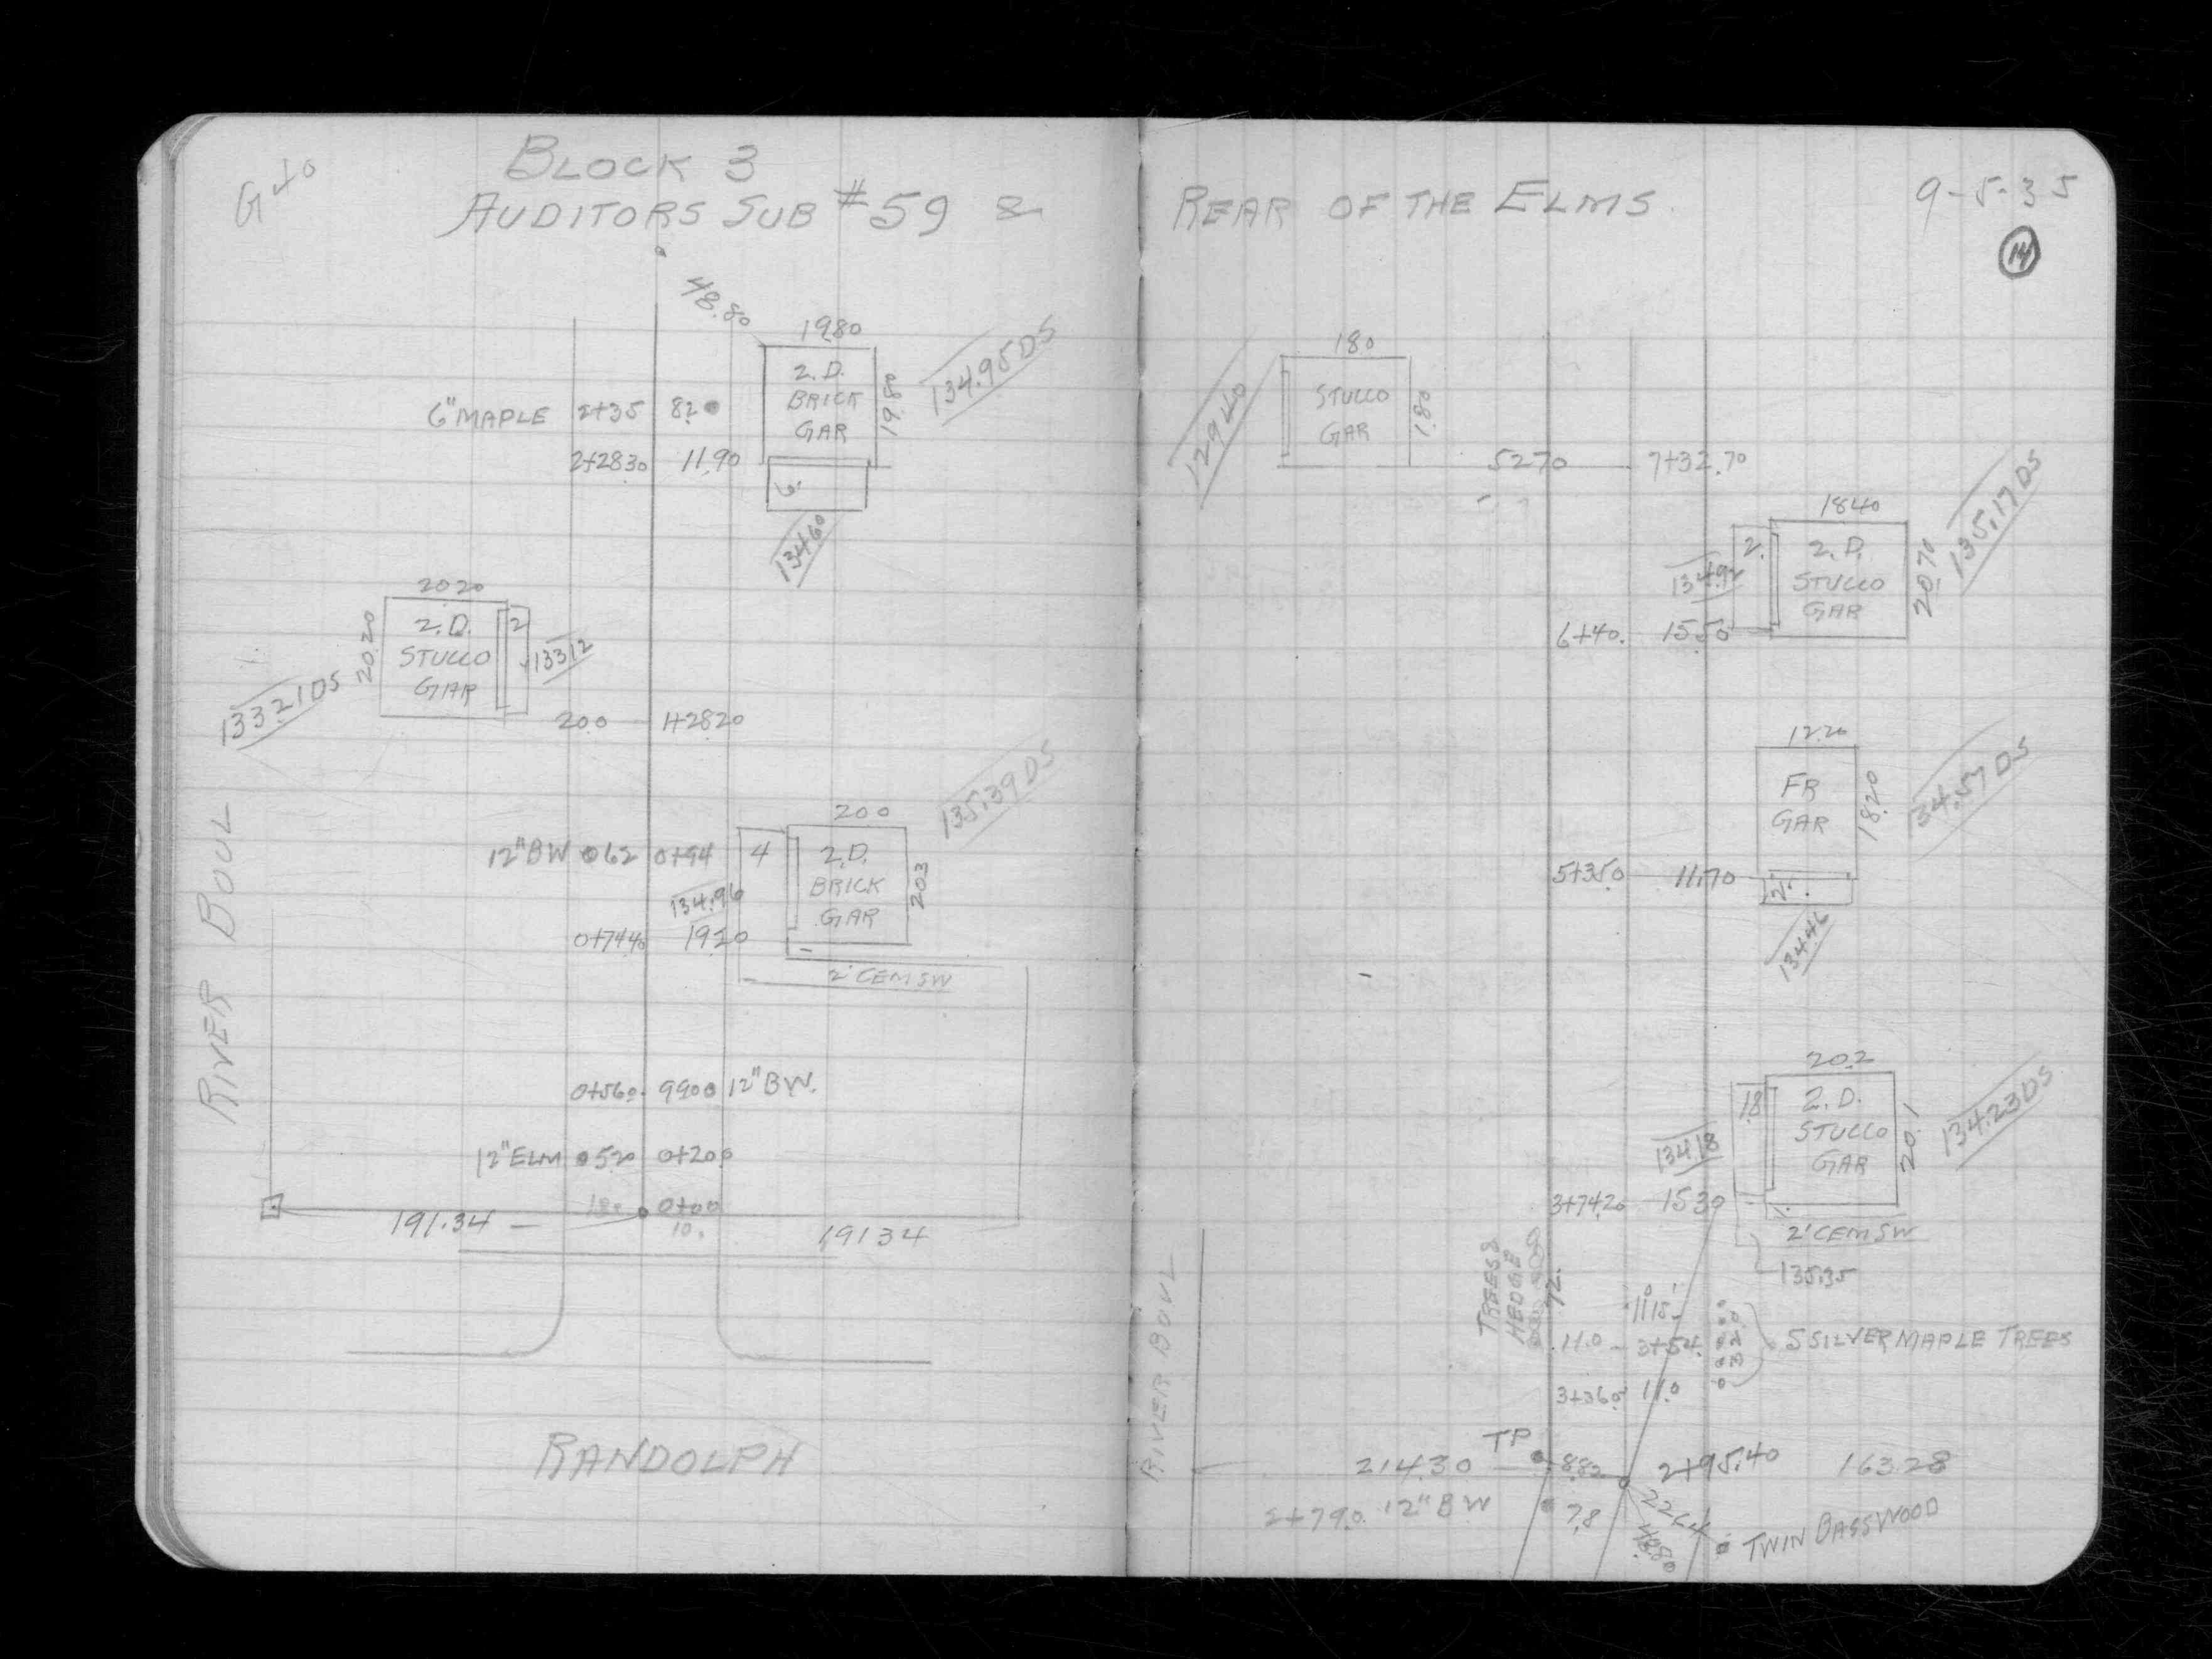 BLOCK 3
AUDITORS SUB #59 &
48.80
19.80
2.D.
BRICK
GAR
19.80
134.95 DS
6" MAPLE 2+35 8.2
2+28.30 11.90
6.
134.60
20.20
20.20
2.D.
STUCCO
GAR
2
133.12
133.21 DS
20.0 1+28.20
RIVER BOUL
135.39 DS
20.0
12" BW 6.2 0+94
4
2.D.
BRICK
GAR
20.3
134.96
0+74.40 19.20
2' CEM SW
0+56.0 9.90 12" BW.
12" ELM 5.20 0+20.0
0+00
10.
191.34
191.34
RANDOLPH
REAR OF THE ELMS.
9-5-35
14
129.40
18.0
STUCCO
GAR
1.80
52.70 7+32.70
18.40
2.
2.D.
STUCCO
GAR
20.70
135.17 DS
134.92
6+40. 15.50
12.20
FR
GAR
18.20
34.57 DS
5+35.0 11.70
2.
134.46
20.2
18
2.D.
STUCCO
GAR
20.1
134.23 DS
134.18
3+74.20 15.30
2' CEM SW
135.35
TREES &
HEDGE
11.0 3+54.
5 SILVER MAPLE TREES
3+36.0 11.0
RIVER BOUL
TP
214.30 8.82 2+95.40 163.28
2+79.0 12" BW 7.8
TWIN BASSWOOD